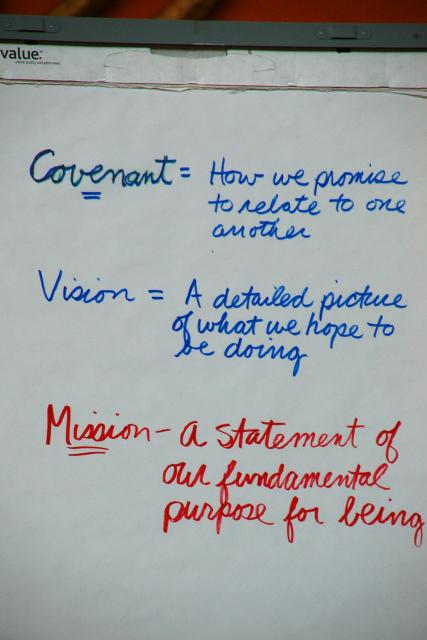 value:
Covenant = How we promise
to relate to one
another
Vision = A detailed picture
of what we hope to
be doing
Mission - a statement of
our fundamental
purpose for being